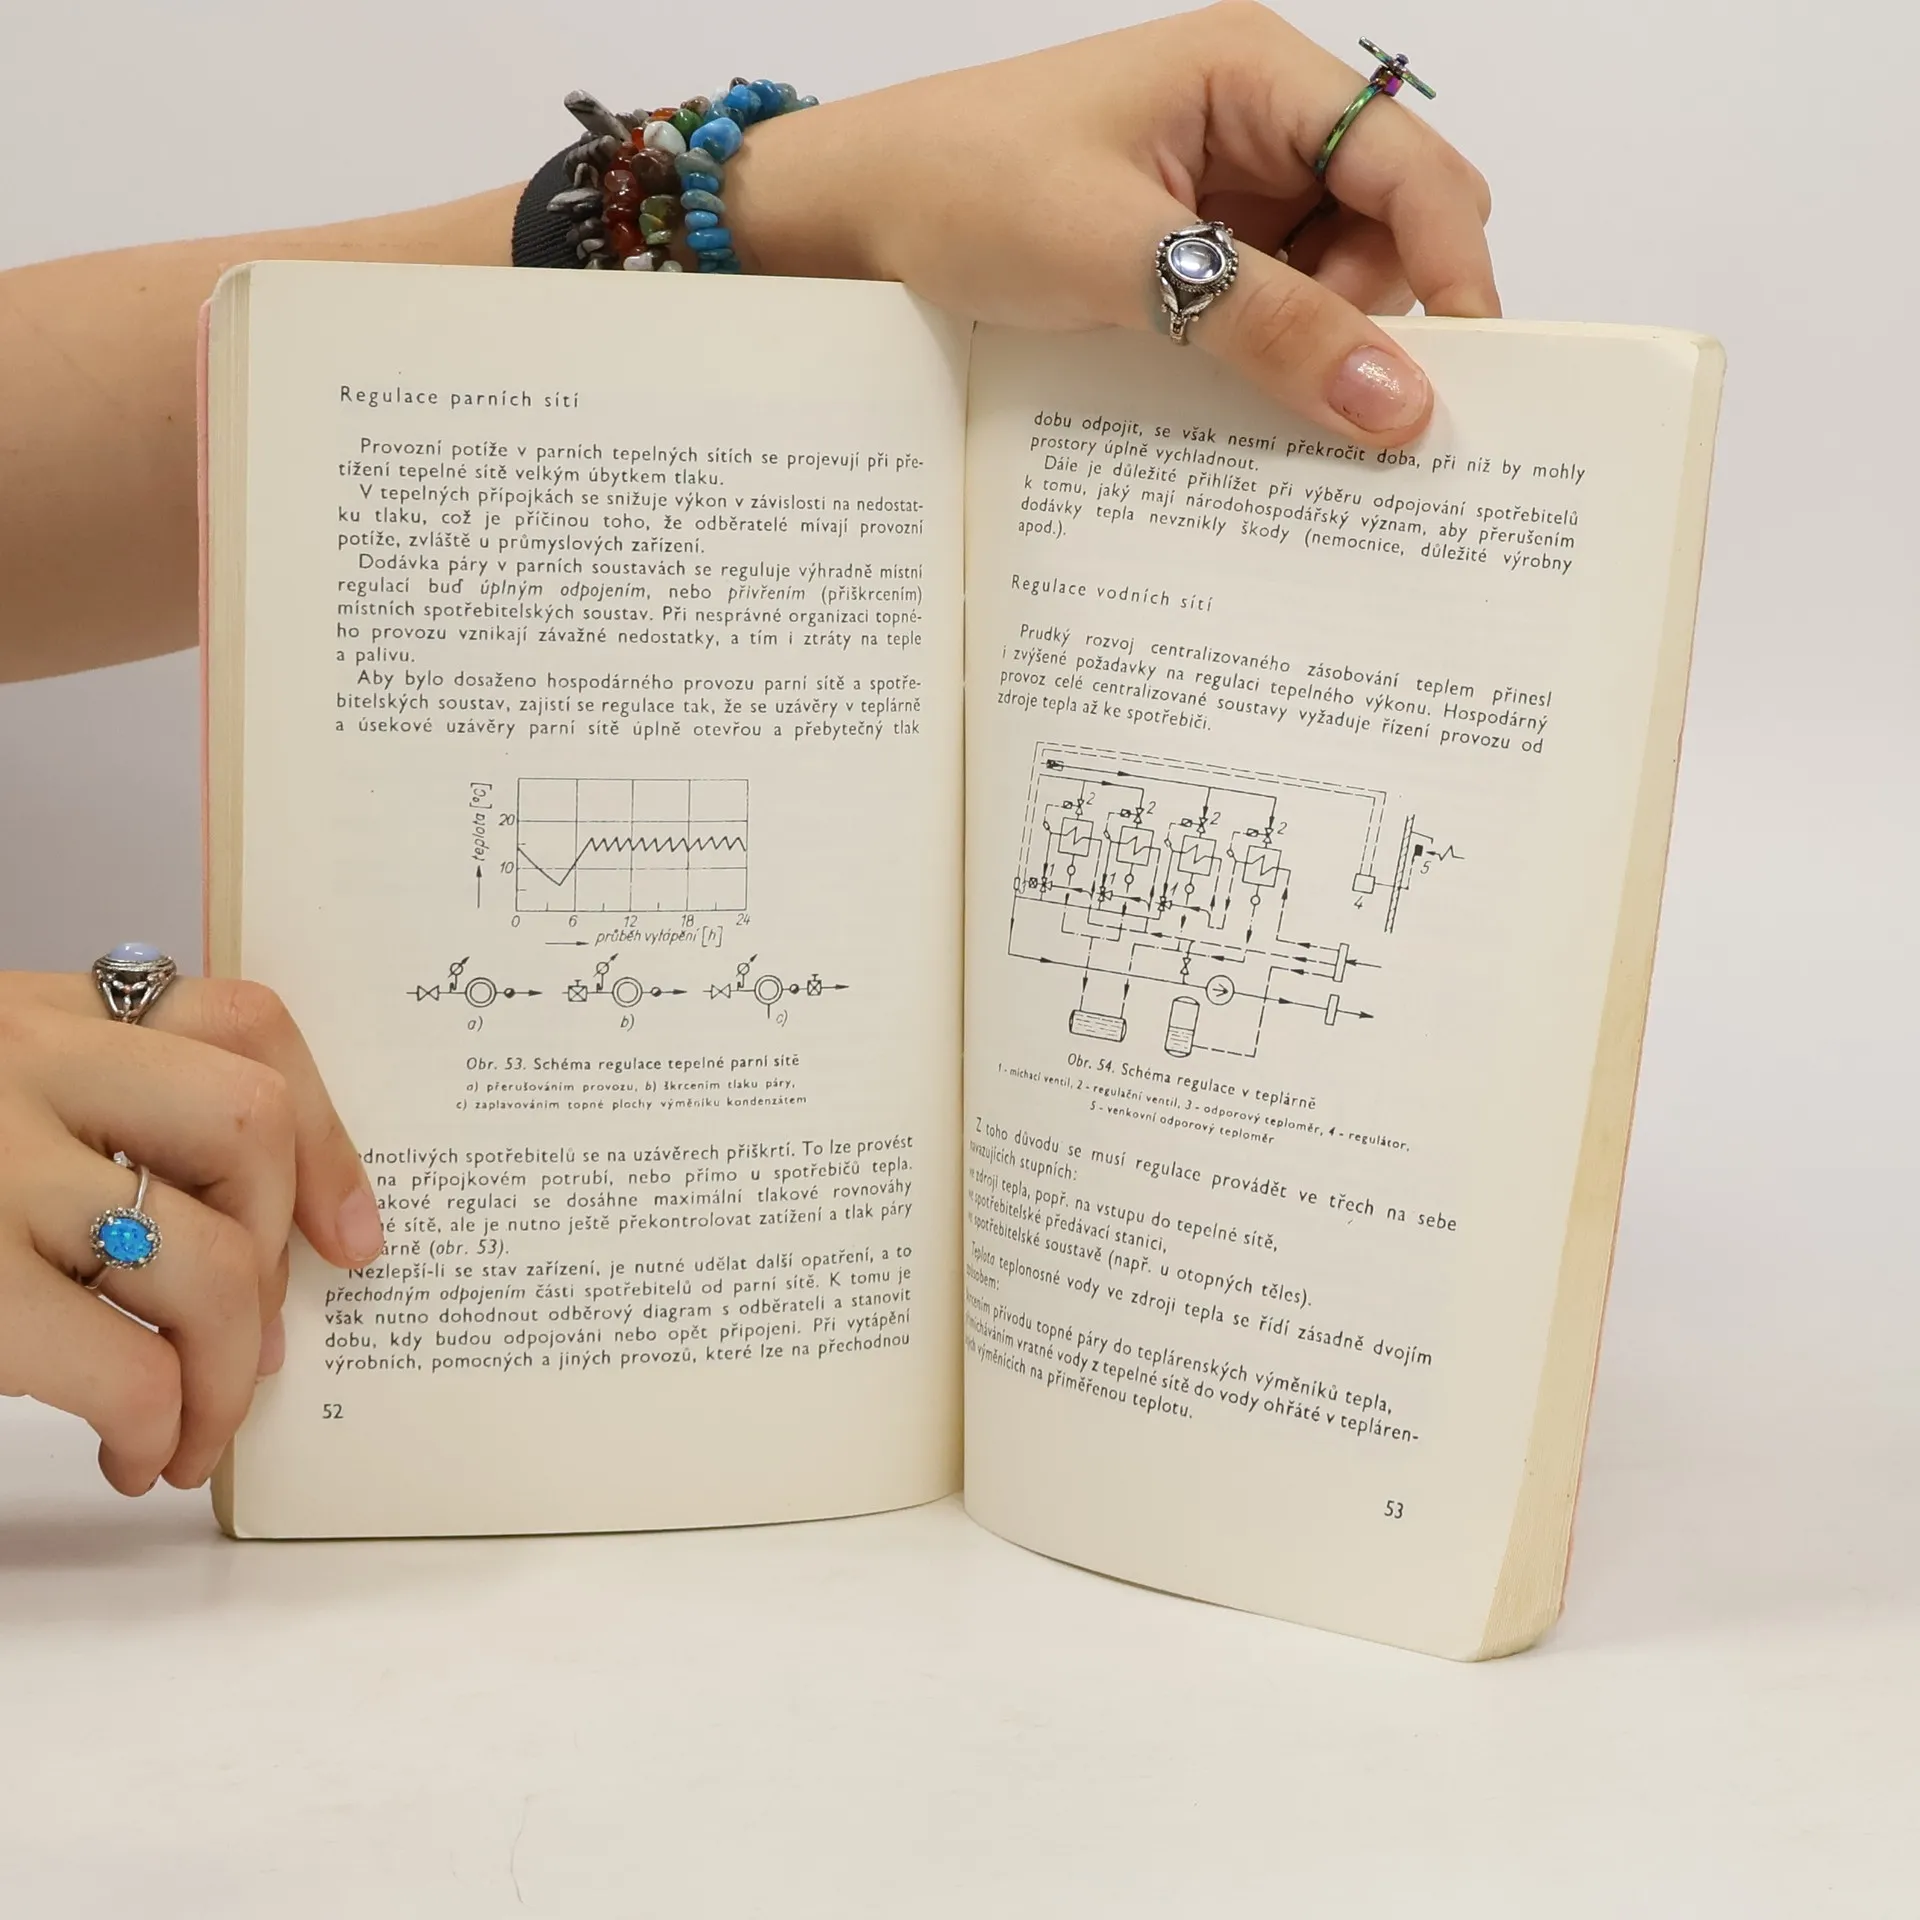 Regulace parních sítí
Provozní potíže v parních tepelných sítích se projevují při pře-
tížení tepelné sítě velkým úbytkem tlaku.
V tepelných přípojkách se snižuje výkon v závislosti na nedostat-
ku tlaku, což je příčinou toho, že odběratelé mívají provozní
potíže, zvláště u průmyslových zařízení.
Dodávka páry v parních soustavách se reguluje výhradně místní
regulací buď úplným odpojením, nebo přivřením (přiškrcením)
místních spotřebitelských soustav. Při nesprávné organizaci topné-
ho provozu vznikají závažné nedostatky, a tím i ztráty na teple
a palivu.
Aby bylo dosaženo hospodárného provozu parní sítě a spotře-
bitelských soustav, zajistí se regulace tak, že se uzávěry v teplárně
a úsekové uzávěry parní sítě úplně otevřou a přebytečný tlak
teplota [°C]
20
10
0 6 12 18 24
průběh vytápění [h]
a) b) c)
Obr. 53. Schéma regulace tepelné parní sítě
a) přerušováním provozu, b) škrcením tlaku páry,
c) zaplavováním topné plochy výměníku kondenzátem
dnotlivých spotřebitelů se na uzávěrech přiškrtí. To lze provést
na přípojkovém potrubí, nebo přímo u spotřebičů tepla.
akové regulaci se dosáhne maximální tlakové rovnováhy
né sítě, ale je nutno ještě překontrolovat zatížení a tlak páry
árně (obr. 53).
Nezlepší-li se stav zařízení, je nutné udělat další opatření, a to
přechodným odpojením části spotřebitelů od parní sítě. K tomu je
však nutno dohodnout odběrový diagram s odběrateli a stanovit
dobu, kdy budou odpojováni nebo opět připojeni. Při vytápění
výrobních, pomocných a jiných provozů, které lze na přechodnou
52
dobu odpojit, se však nesmí překročit doba, při níž by mohly
prostory úplně vychladnout.
Dále je důležité přihlížet při výběru odpojování spotřebitelů
k tomu, jaký mají národohospodářský význam, aby přerušením
dodávky tepla nevznikly škody (nemocnice, důležité výrobny
apod.).
Regulace vodních sítí
Prudký rozvoj centralizovaného zásobování teplem přinesl
i zvýšené požadavky na regulaci tepelného výkonu. Hospodárný
provoz celé centralizované soustavy vyžaduje řízení provozu od
zdroje tepla až ke spotřebiči.
2 2 2 2
1 1 1
4 5
Obr. 54. Schéma regulace v teplárně
1 - míchací ventil, 2 - regulační ventil, 3 - odporový teploměr, 4 - regulátor,
5 - venkovní odporový teploměr
Z toho důvodu se musí regulace provádět ve třech na sebe
navazujících stupních:
ve zdroji tepla, popř. na vstupu do tepelné sítě,
ve spotřebitelské předávací stanici,
ve spotřebitelské soustavě (např. u otopných těles).
Teplota teplonosné vody ve zdroji tepla se řídí zásadně dvojím
způsobem:
škrcením přívodu topné páry do teplárenských výměníků tepla,
přimícháváním vratné vody z tepelné sítě do vody ohřáté v tepláren-
ských výměnících na přiměřenou teplotu.
53